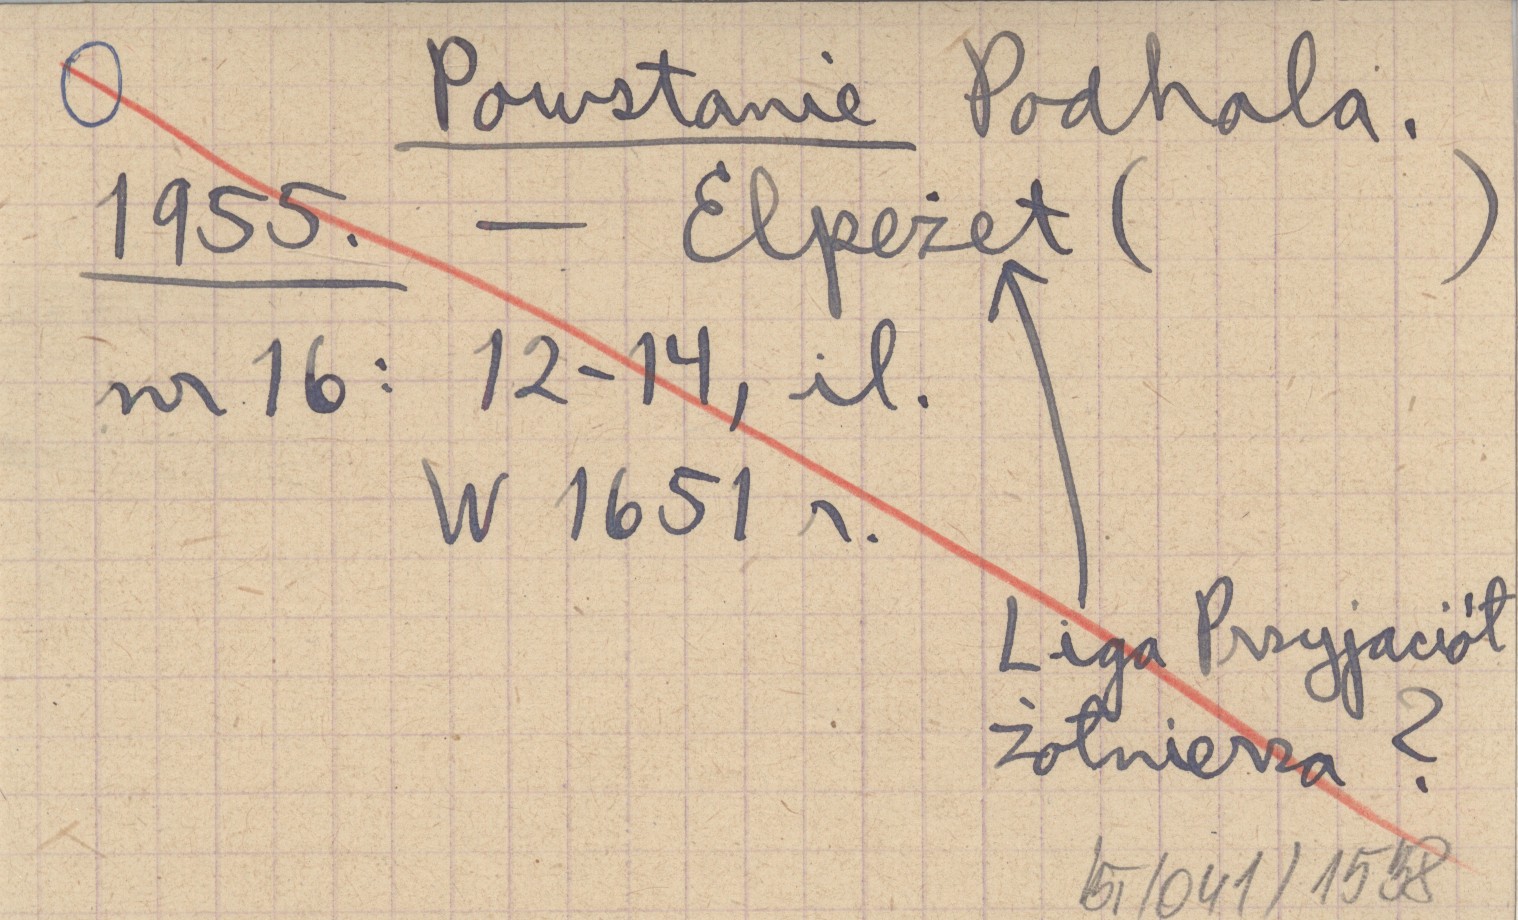 Powstanie Podhala.
1955. — Elpeżet ( )
nr 16: 12-14, il.
W 1651 r.
Liga Przyjaciół
żołnierza ?
/041/